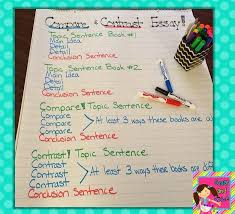 Compare & Contrast Essay!
Topic Sentence Book #1
Main Idea
Detail
Detail
Conclusion Sentence
Topic Sentence Book #2
Main Idea
Detail
Detail
Conclusion Sentence
Compare! Topic Sentence
Compare
Compare
Compare
At least 3 ways these books are a
Contrast! Topic Sentence
Contrast
Contrast
Contrast
At least 3 ways these books are di
Conclusion Sentence